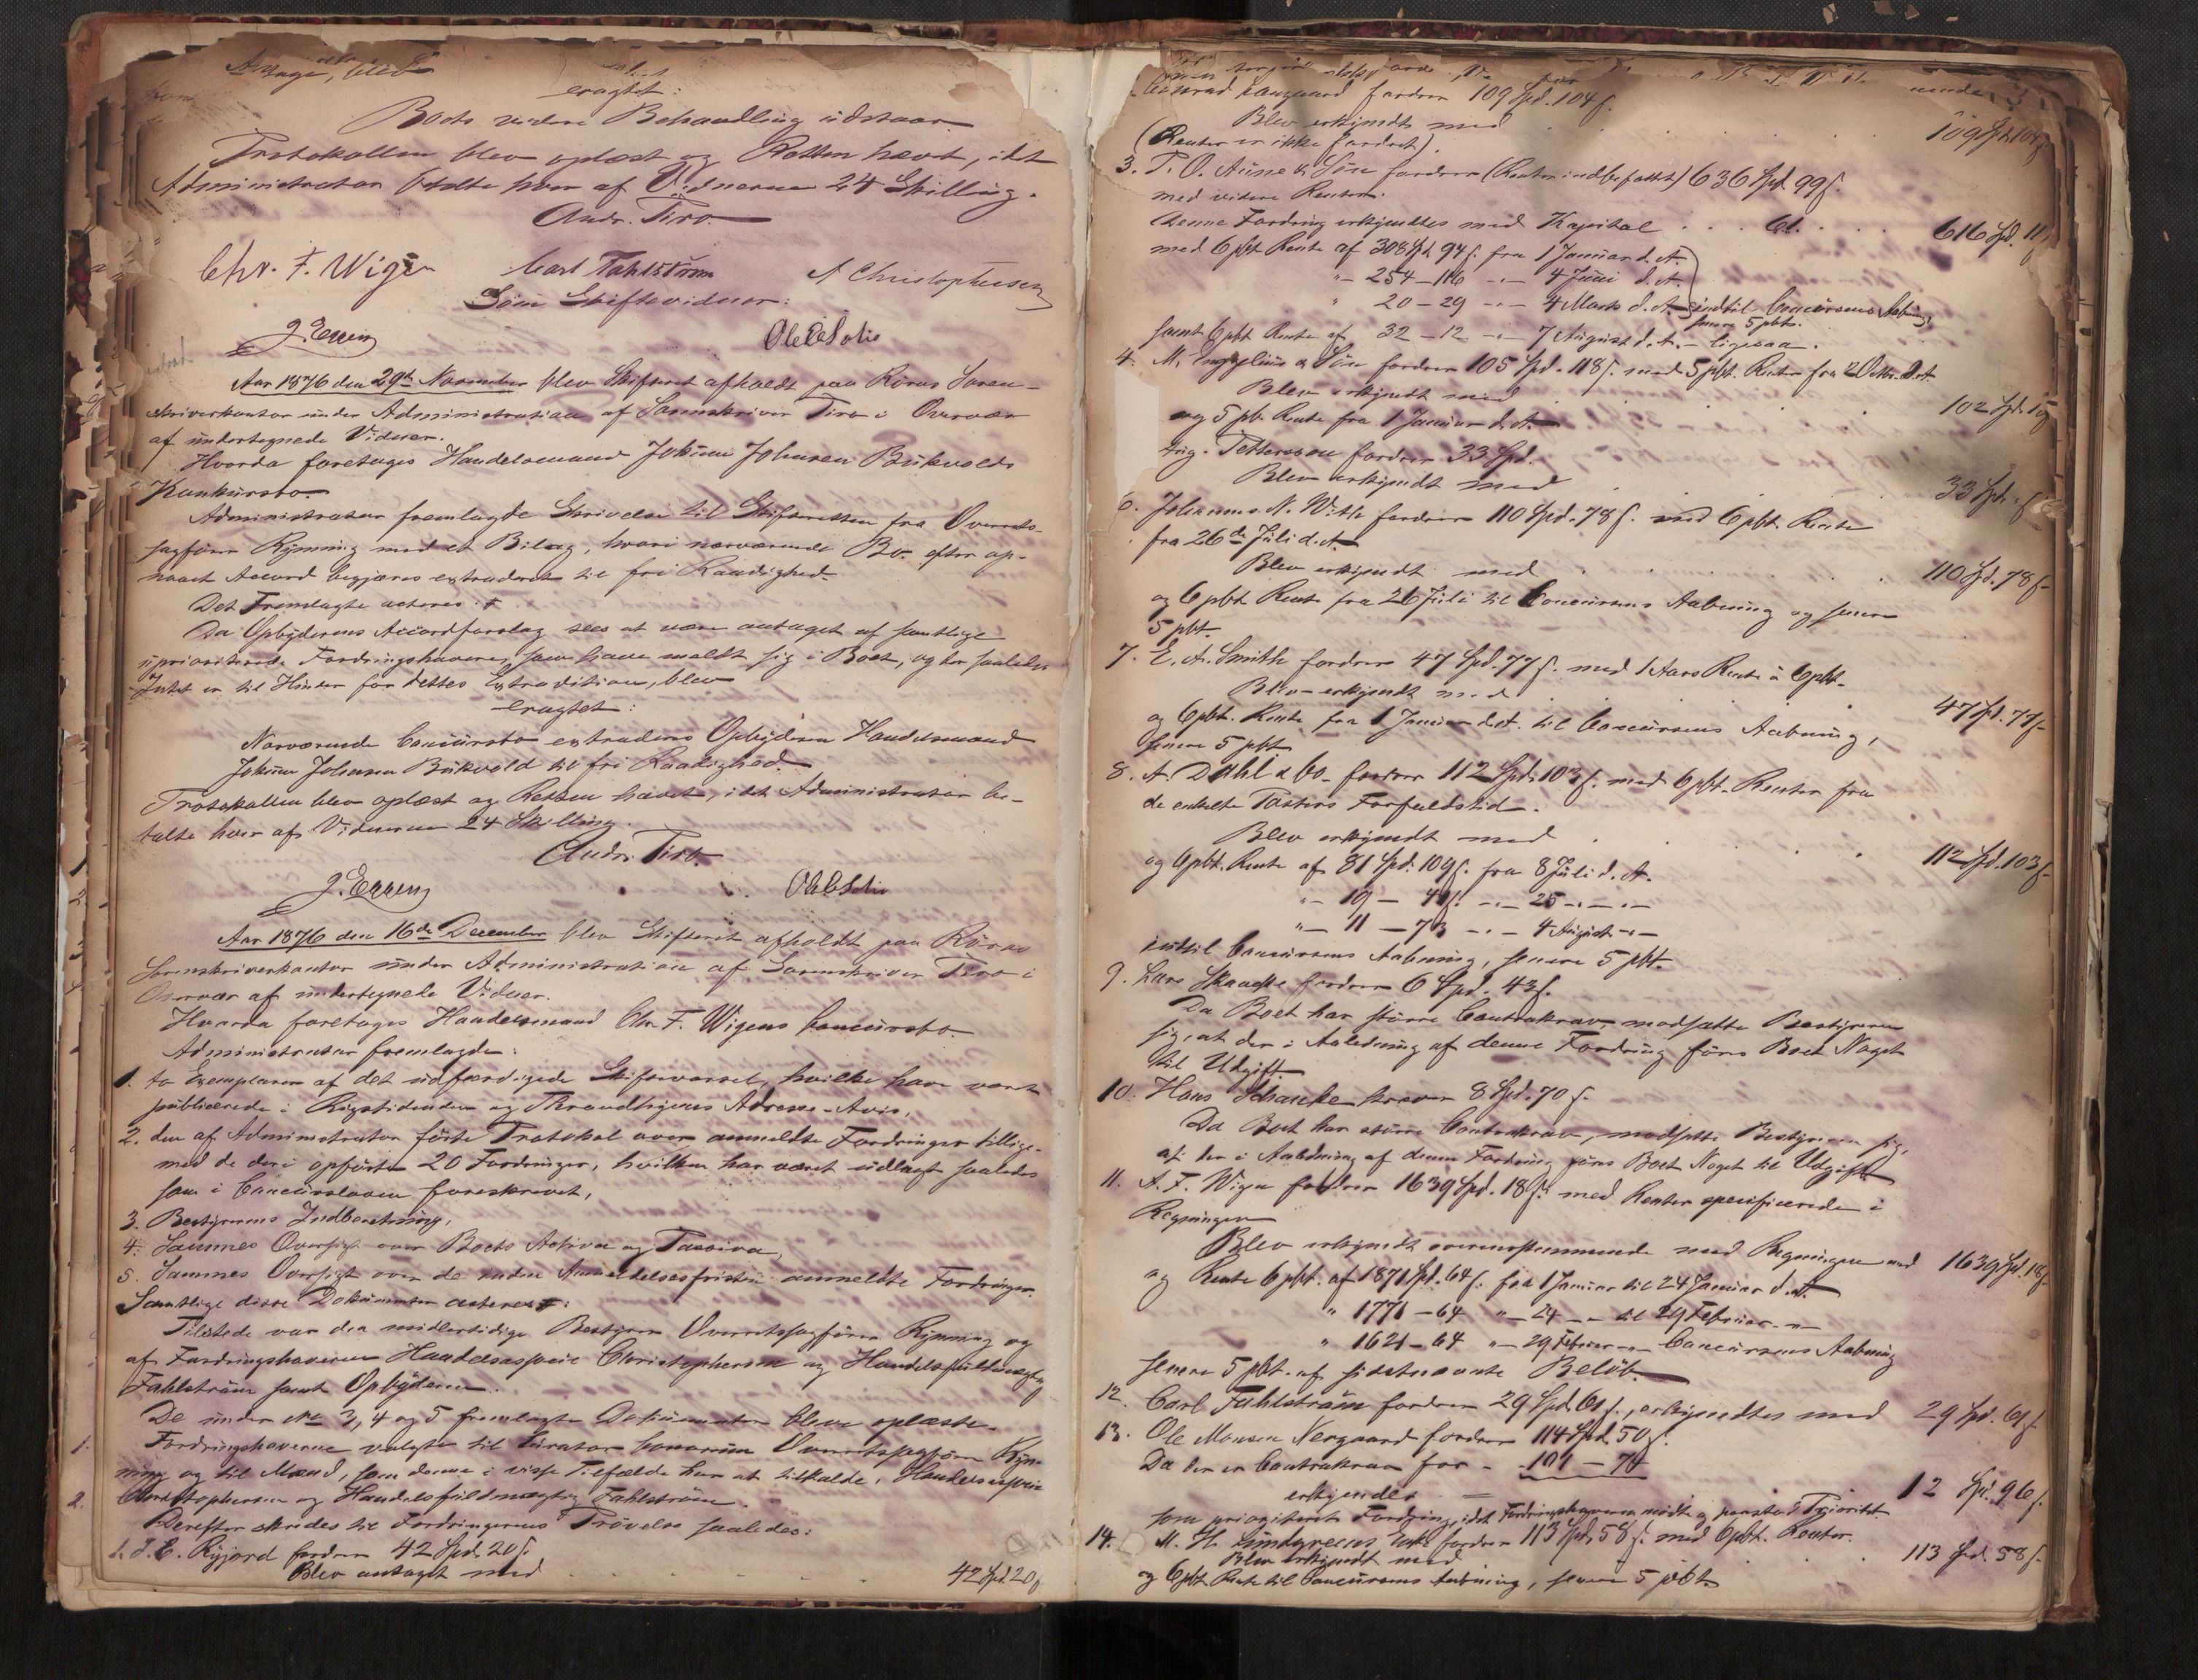 blev
eragtet:
Boets videre Behandling udstaar.
Protokollen blev oplæst og Retten hævet, idet
Administrator betalte hver af Vidnerne 24 Skilling.
Andr. Tiro.
Chr. F. Wigen Carl Fahlström A Christophersen
Som Skiftevidner:
Aar 1876 den 29de November blev Skifteret afholdt paa Röros Soren-
skriverkontor under Administration af Sorenskriver Tiro i Overvær
af undertegnede Vidner.
Hvorda foretoges Handelsmand Johan Johnsen Bukvolds
Konkursbo.
Administrator fremlagde Skrivelse til Skifteretten fra Overrets-
sagförer Rynning med et Bilag, hvori nærværende Bo efter op-
naaet Accord begjæres extraderet til fri Raadighed.
Det Fremlagte acteres:
Da Opbyderens Accordforslag sees at være antaget af samtlige
uprioriterede Fordringshavere, som have meldt sig i Boet, og der saaledes
Intet er til Hinder for dettes Extradition, blev
eragtet:
Nærværende Concursbo extraderes Opbyderen Handelsmand
Johan Johnsen Bukvold til fri Raadighed.
Protokollen blev oplæst og Retten hævet, idet Administrator be-
talte hver af Vidnerne 24 Skilling.
Andr. Tiro.
Aar 1876 den 16de December blev Skifteret afholdt paa Röros
Sorenskriverkontor under Administration af Sorenskriver Tiro i
Overvær af undertegnede Vidner.
Hvorda foretoges Handelsmand Chr. F. Wigens Concursbo.
Administrator fremlagde:
1. to Exemplarer af det udfærdigede Skiftevarsel, hvilke have været
publicerede i Rigstidenden og Throndhjems Adresse-Avis,
2. den af Administrator förte Protokol over anmeldte Fordringer tillige-
med de deri opförte 20 Fordringer, hvilken har været udlagt saaledes
som i Concursloven foreskrevet,
3. Bestyrerens Indberetning,
4. Sammes Oversigt over Boets Activa og Passiva,
5. Sammes Oversigt over de inden Anmeldelsesfristen anmeldte Fordringer.
Samtlige disse Dokumenter acteres:
Tilstede var den midlertidige Bestyrer Overretssagförer Rynning og
af Fordringshaverne Handelsagent Christophersen og Handelsfuldmægtig
Fahlström samt Opbyderen.
De under No 3, 4 og 5 fremlagte Dokumenter bleve oplæste.
1. Fordringshaverne valgte til Curator bonorum Overretssagförer Ryn-
ning og til Mænd, som denne i visse Tilfælde har at tilkalde, Handelsagent
2. Christophersen og Handelsfuldmægtig Fahlström.
Derefter skredes til Fordringernes Prövelse saaledes:
1. Ryjord fordrer 42 Spd. 20 s.
Blev antaget med . . . . . 42 Spd 20 s
fordrer 109 Spd. 104 s.
Blev erkjendt med . . . . 109 Spd 104 s
(Renter er ikke fordret).
3. P. O. Aune & Sön fordrer (Renter indbefattet) 636 Spd. 99 s.
med videre Renter.
Denne Fordring erkjendtes med Kapital . . . 616 Spd. 11 s
med 6 pCt Rente af 308 Spd. 94 s. fra 1 Januar d. A.
"- 254 - 116 -"- 4 Juni d. A.
" 20 - 29 -"- 4 Marts d. A. indtil Concursens Aabning,
senere 5 pCt.
samt 6 pCt Rente af 32 - 12 -"- 7 August d. A. - ligesaa.
4. M. & Sön fordrer 105 Spd. 118 s. med 5 pCt. Renter fra d. A.
Blev erkjendt med . . . 102 Spd.
og 5 pCt. Rente fra 1 Januar d. A.
Pettersson fordrer 33 Spd.
Blev erkjendt med . . . 33 Spd. - s
6. Johannes N. With fordrer 110 Spd. 78 s. med 6 pCt. Rente
fra 26de Juli d. A.
Blev erkjendt med . . . 110 Spd. 78 s
og 6 pCt Rente fra 26 Juli til Concursens Aabning og senere
5 pCt.
7. E. A. Smith fordrer 47 Spd. 77 s. med 1 Aars Rente à 6 pCt.
Blev erkjendt med . . . 47 Spd. 77 s
og 6 pCt. Rente fra 1 Januar d. A. til Concursens Aabning,
senere 5 pCt.
8. A. Dahl & Co. fordrer 112 Spd. 103 s. med 6 pCt. Renter fra
de enkelte Posters Forfaldstid.
Blev erkjendt med . . . 112 Spd. 103 s
og 6 pCt. Rente af 81 Spd. 109 s. fra 8 Juli d. A.
"- 19 - 41 s. -"- 25 -"- -"-
"- 11 - 73 -"- 4 August -"-
indtil Concursens Aabning, senere 5 pCt.
9. Lars Skancke fordrer 6 Spd. 43 s.
Da Boet har större Contrakrav, modsatte Bestyreren
sig, at der i Anledning af denne Fordring föres Boet Noget
til Udgift.
10. Hans Schancke krever 8 Spd. 70 s.
Da Boet har större Contrakrav, modsatte Bestyreren sig,
at der i Anledning af denne Fordring föres Boet Noget til Udgift.
11. A. F. Wigen fordrer 1639 Spd. 18 s. med Renter specificerede i
Regningen
Blev erkjendt overensstemmende med Regningen med 1639 Spd. 18 s.
og Rente 6 pCt. af 1871 Spd. 64 s. fra 1 Januar til 24 Januar d. A.
" 1771 - 64 "- 24 -"- til 29 Februar -"-
" 1621 - 64 "- 29 Februar -"- Concursens Aabning
senere 5 pCt. af sidstnævnte Belöb.
12. Carl Fahlström fordrer 29 Spd. 61 s., erkjendtes med 29 Spd. 61 s
13. Ole Monsen Nergaard fordrer 114 Spd. 50 s.
Da der er Contrakrav for - 101 - 74
erkjendes = 12 Spd. 96 s.
som prioriteret Fordring, idet Fordringshaveren mödte og paastod Prioritet
14. M. H. Lundgreens Enke fordrer 113 Spd. 58 s. med 6 pCt. Renter.
Blev erkjendt med . . . 113 Spd. 58 s.
og 6 pCt Rente til Concursens Aabning, senere 5 pCt.